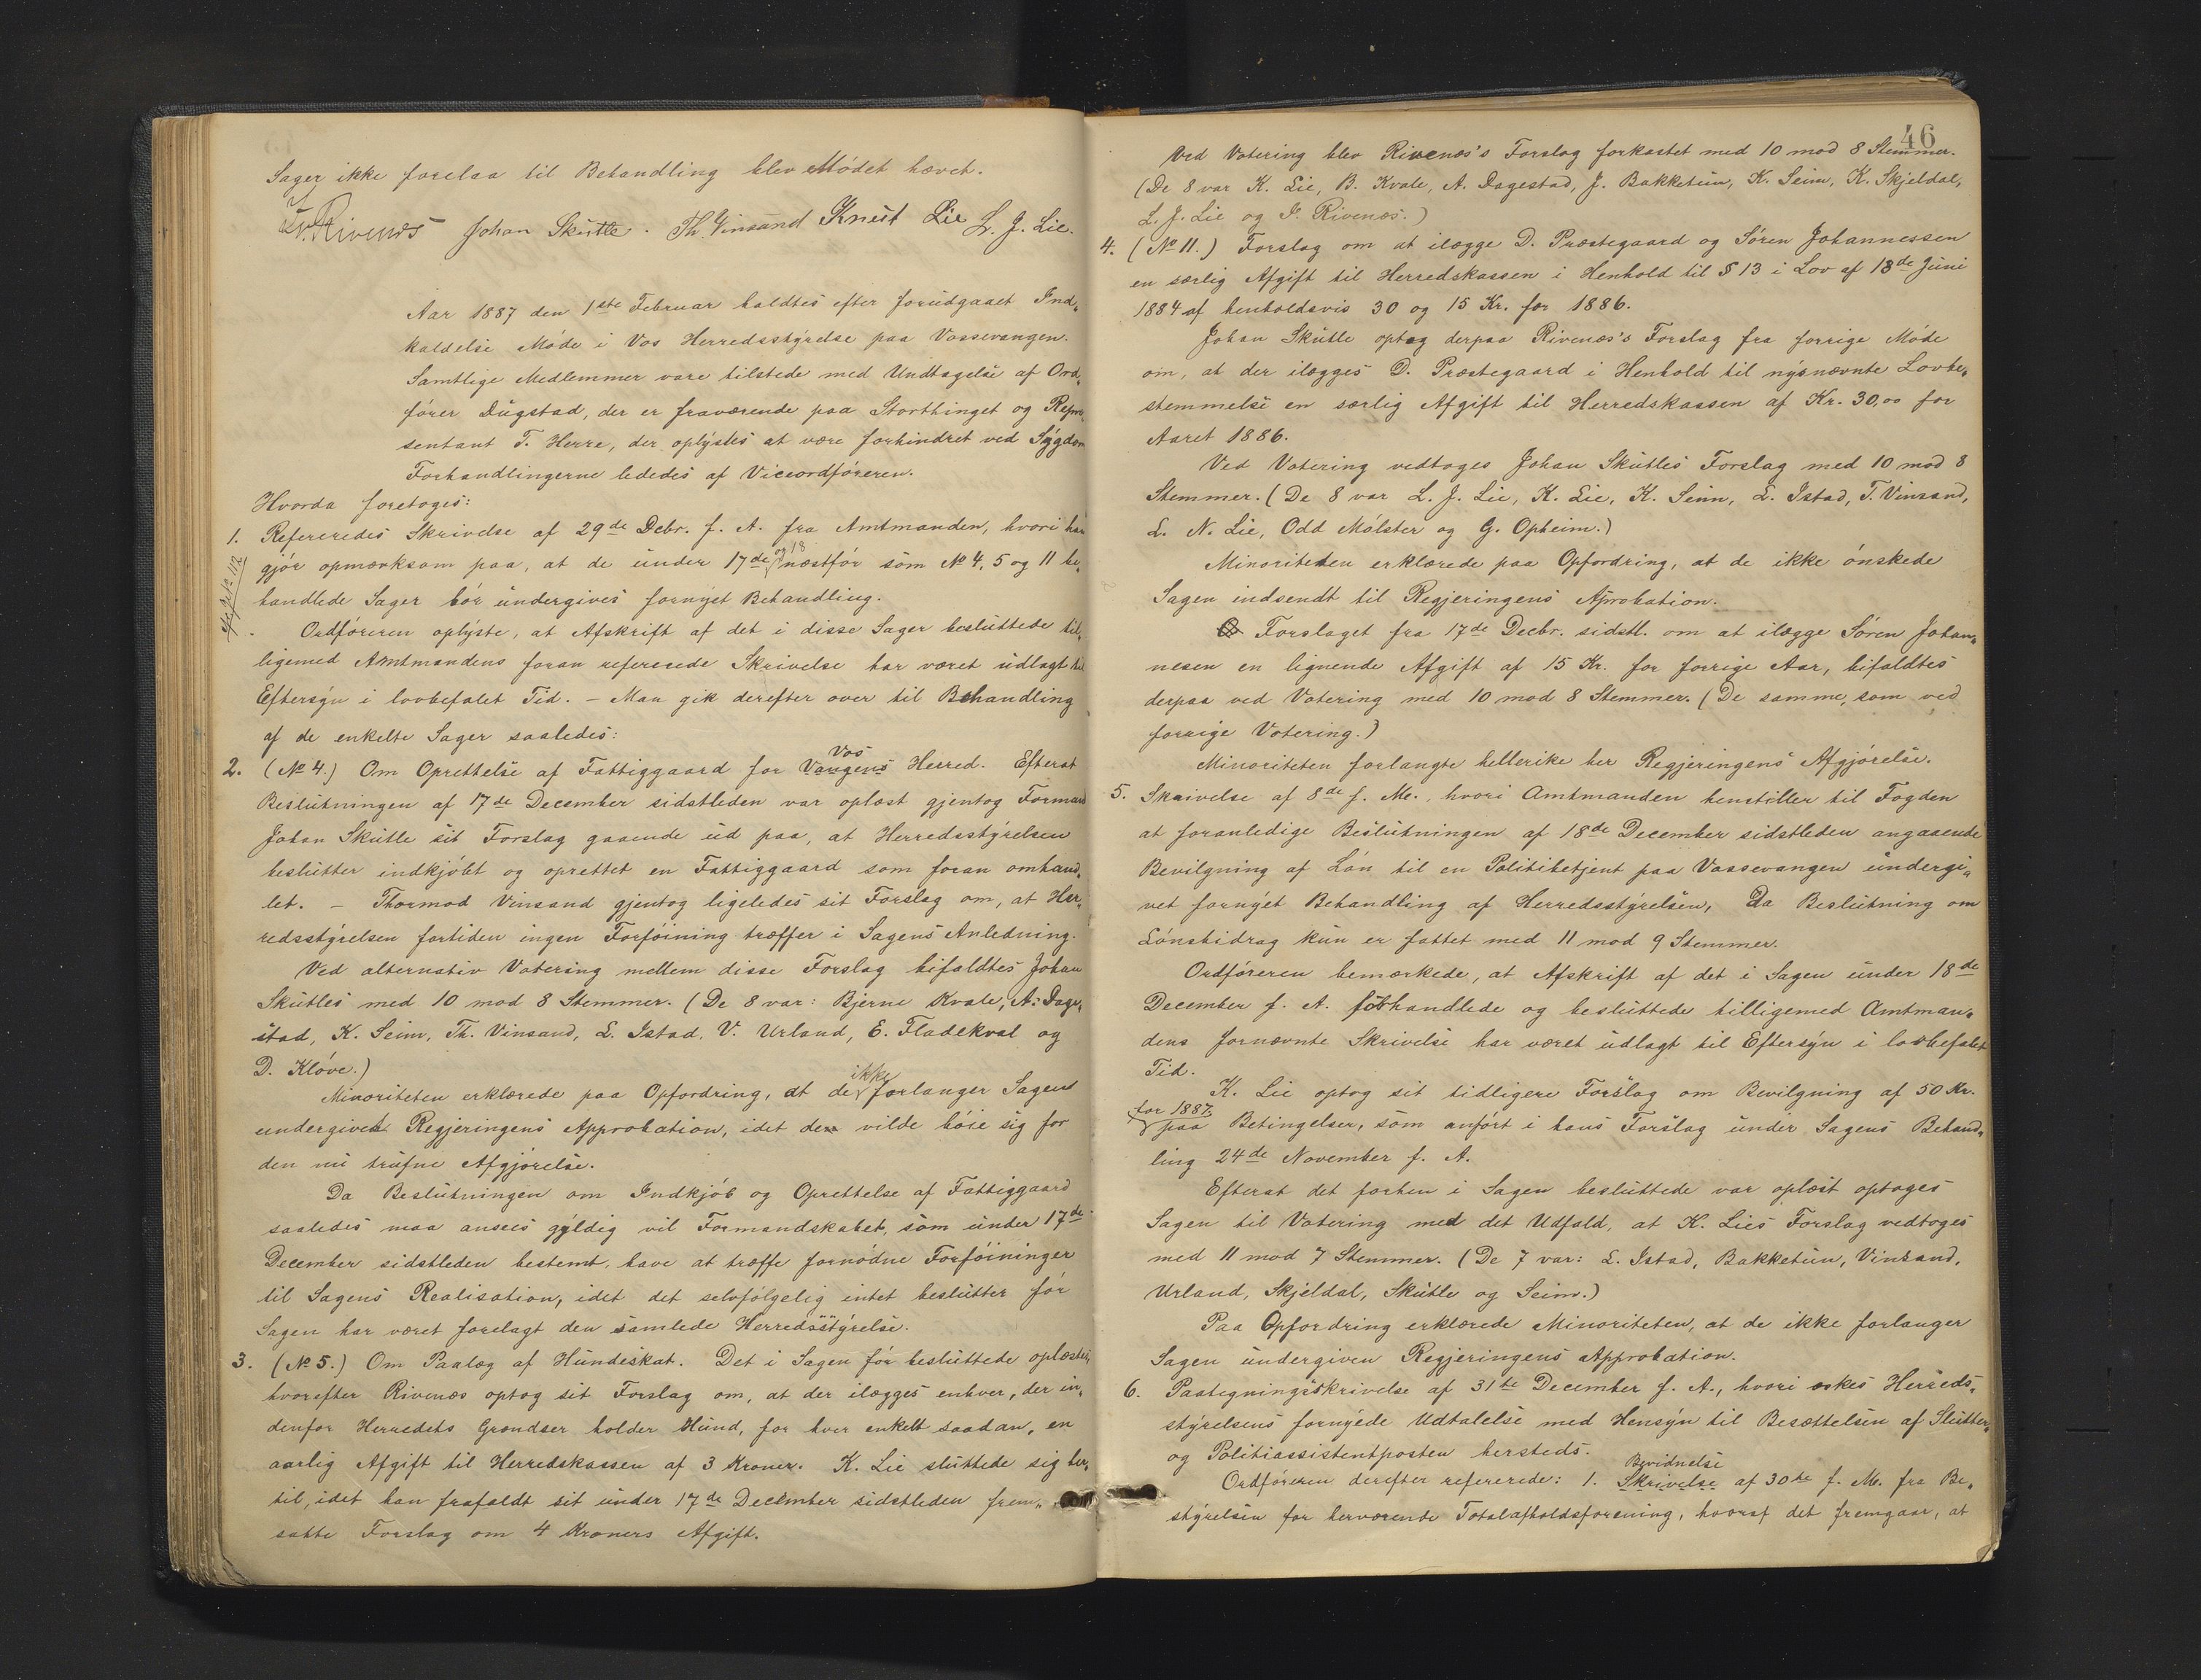 Sager ikke forelaa til Behandling blev Mödet hævet.
Rivenæs Johan Skutle. Th. Vinsand Knut Lie L. J. Lie.
Aar 1887 den 1ste Februar holdtes efter forudgaaet Ind„
kaldelse Möde i Vos Herredsstyrelse paa Vossevangen.
Samtlige Medlemmer vare tilstede med Undtagelse af Ord„
förer Dugstad, der er fraværende paa Storthinget og Repræ
sentant T. Herre, der oplystes at være forhindret ved Sygdom
Forhandlingerne lededes af Viceordföreren.
Hvorda foretoges:
1. Refereredes Skrivelse af 29de Decbr. f. A. fra Amtmanden, hvori han
gjör opmærksom paa, at de under 17de og 18 næstför som No 4, 5 og 11 be„
handlede Sager bör undergives fornyet Behandling.
Ordföreren oplyste, at Afskrift af det i disse Sager besluttede til„
ligemed Amtmandens foran refererede Skrivelse har været udlagt til
Eftersyn i lovbefalet Tid. – Man gik derefter over til Behandling
af de enkelte Sager saaledes:
2. (No 4.) Om Oprettelse af Fattiggaard for Vangens Vos Herred. Efterat
Beslutningen af 17de December sidstleden var oplæst gjentog Formand
Johan Skutle sit Forslag gaaende ud paa, at Herredsstyrelsen
beslutter indkjöbt og oprettet en Fattiggaard som foran omhand„
let. – Thormod Vinsand gjentog ligeledes sit Forslag om, at Her„
redsstyrelsen fortiden ingen Forföining træffer i Sagens Anledning.
Ved alternativ Votering mellem disse Forslag bifaldtes Johan
Skutles med 10 mod 8 Stemmer. (De 8 var: Bjerne Kvale, A. Dage„
stad, K. Seim, Th. Vinsand, L. Istad, V. Urland, E. Fladekval og
D. Klöve.)
Minoriteten erklærede paa Opfordring, at de ikke forlanger Sagens
undergivet Regjeringens Approbation, idet den vilde böie sig for
den nu trufne Afgjörelse.
Da Beslutningen om Indkjöb og Oprettelse af Fattiggaard
saaledes maa ansees gyldig vil Formandskabet, som under 17de
December sidstleden bestemt, have at træffe fornödne Forföininger
til Sagens Realisation, idet det selvfölgelig intet beslutter för
Sagen har været forelagt den samlede Herredsstyrelse.
3. (No 5.) Om Paalæg af Hundeskat. Det i Sagen för besluttede oplæstes,
hvorefter Rivenæs optog sit Forslag om, at der ilægges enhver, der in„
denfor Herredets Grændser holder Hund, for hver enkelt saadan, en
aarlig Afgift til Herredskassen af 3 Kroner. K. Lie sluttede sig her„
til, idet han frafaldt sit under 17de December sidstleden frem„
satte Forslag om 4 Kroners Afgift.
46
Ved Votering blev Rivenæs's Forslag forkastet med 10 mod 8 Stemmer.
(De 8 var K. Lie, B. Kvale, A. Dagestad, J. Bakketun, K. Seim, K. Skjeldal,
L. J. Lie og I. Rivenæs.)
4. (No 11.) Forslag om at ilægge D. Præstegaard og Sören Johannessen
en særlig Afgift til Herredskassen i Henhold til § 13 i Lov af 18de Juni
1884 af henholdsvis 30 og 15 Kr. for 1886.
Johan Skutle optog derpaa Rivenæs's Forslag fra forrige Möde
om, at der ilægges D. Præstegaard i Henhold til nysnævnte Lovbe„
stemmelse en særlig Afgift til Herredskassen af Kr. 30,00 for
Aaret 1886.
Ved Votering vedtoges Johan Skutles Forslag med 10 mod 8
Stemmer. (De 8 var L. J. Lie, K. Lie, K. Seim, L. Istad, T. Vinsand,
L. N. Lie, Odd Mölster og G. Opheim.)
Minoriteten erklærede paa Opfordring, at de ikke önskede
Sagen indsendt til Regjeringens Aprobation.
Forslaget fra 17de Decbr. sidstl. om at ilægge Sören Johan„
nesen en lignende Afgift af 15 Kr. for forrige Aar, bifaldtes
derpaa ved Votering med 10 mod 8 Stemmer. (De samme, som ved
forrige Votering.)
Minoriteten forlangte hellerike her Regjeringens Afgjörelse.
5. Skrivelse af 8de f. Me., hvori Amtmanden henstiller til Fogden
at foranledige Beslutningen af 18de December sidstleden angaaende
Bevilgning af Lön til en Politibetjent paa Vossevangen undergi„
vet fornyet Behandling af Herredsstyrelsen, da Beslutning om
Lönsbidrag kun er fattet med 11 mod 9 Stemmer.
Ordföreren bemærkede, at Afskrift af det i Sagen under 18de
December f. A. forhandlede og besluttede tilligemed Amtman„
dens fornævnte Skrivelse har været udlagt til Eftersyn i lovbefalet
Tid.
K. Lie optog sit tidligere Forslag om Bevilgning af 50 Kr.
for 1887 paa Betingelser, som anfört i hans Forslag under Sagens Behand„
ling 24de November f. A.
Efterat det forhen i Sagen besluttede var oplæst optoges
Sagen til Votering med det Udfald, at K. Lies Forslag vedtoges
med 11 mod 7 Stemmer. (De 7 var: L. Istad, Bakketun, Vinsand,
Urland, Skjeldal, Skutle og Seim.)
Paa Opfordring erklærede Minoriteten, at de ikke forlanger
Sagen undergiven Regjeringens Approbation.
6. Paategningsskrivelse af 31te December f. A., hvori æskes Herreds„
styrelsens fornyede Udtalelse med Hensyn til Besættelsen af Slutter„
og Politiassistentposten hersteds.
Ordföreren derefter refererede: 1. Skrivelse Bevidnelse af 30te f. Me. fra Be„
styrelsen for herværende Totalafholdsforening, hvoraf det fremgaar, at